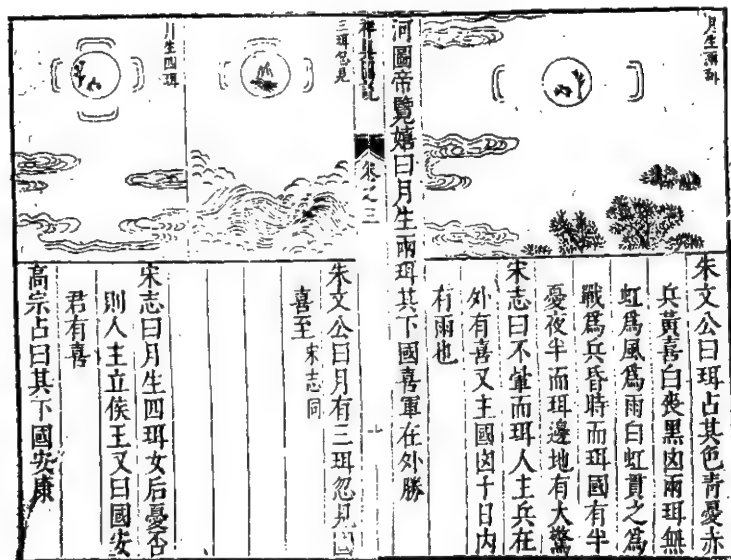 月生兩珥
朱文公曰珥占其色青憂赤
兵黃喜白喪黑凶兩珥無
虹爲風爲雨白虹貫之爲
戰爲兵昏時而珥國有半
憂夜半而珥邊地有大驚
宋志曰不暈而珥人主兵在
外有喜又主國凶十日內
有雨也
河圖帝覽嬉曰月生兩珥其下國喜軍在外勝
卷之三
三珥忽見
朱文公曰月有三珥忽見國
喜至 宋志同
月生四珥
宋志曰月生四珥女后憂否
則人主立侯王又曰國安
君有喜
高宗占曰其下國安康